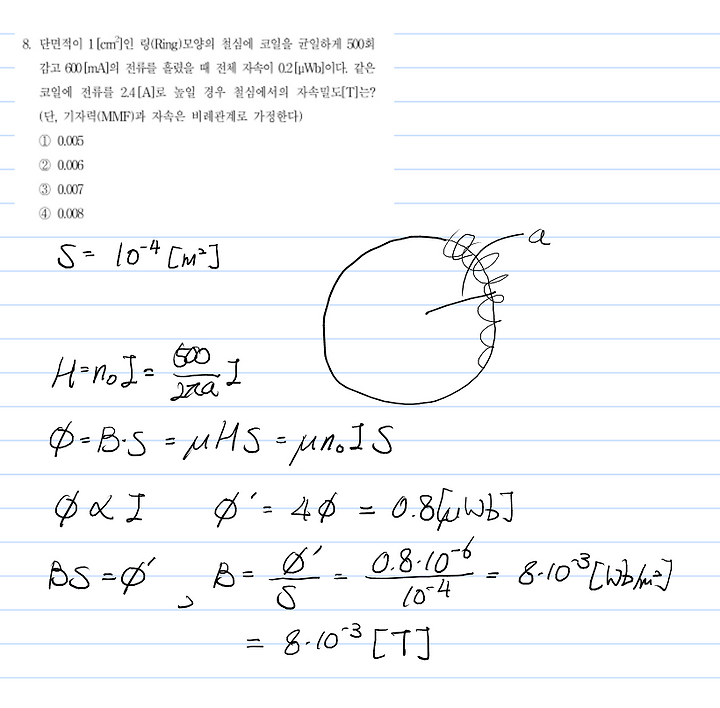 8. 단면적이 1[cm²]인 링(Ring)모양의 철심에 코일을 균일하게 500회
감고 600[mA]의 전류를 흘렸을 때 전체 자속이 0.2[μWb]이다. 같은
코일에 전류를 2.4[A]로 높일 경우 철심에서의 자속밀도[T]는?
(단, 기자력(MMF)과 자속은 비례관계로 가정한다)
① 0.005
② 0.006
③ 0.007
④ 0.008
S = 10⁻⁴ [m²]
a
H = n₀I = 500/2πa I
φ = B·S = μHS = μn₀IS
φ ∝ I φ' = 4φ = 0.8[μWb]
BS = φ', B = φ'/S = 0.8·10⁻⁶/10⁻⁴ = 8·10⁻³ [Wb/m²]
= 8·10⁻³ [T]